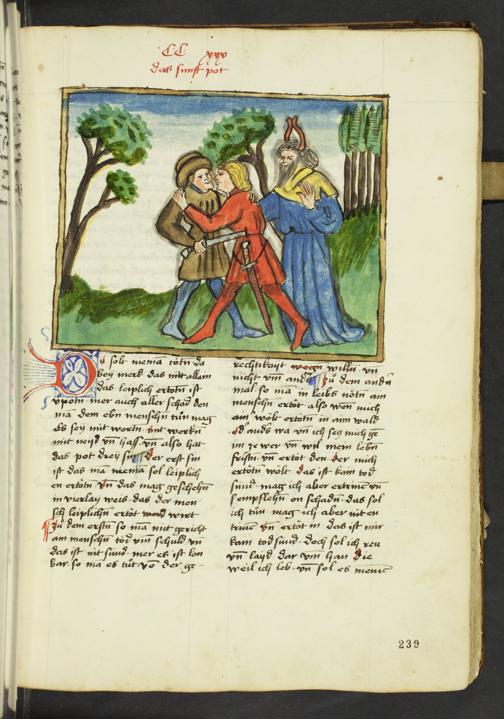 CC xxx
das funfft pot
Du solt niema tötn da
bey merk das nit allain
das leiplich ertötn ist
vpotn mer auch aller schad den
ma dem ebn menschn tün mag
es sey mit wortn mit werkn
mit neyd vn hass vn also hat
das pot drey sin der erst sin
ist das ma niema sol leiplich
en ertötn vn das mag geschehn
in vierlay weis das der men
sch leiplichn ertöt wird
Zu dem erstn so ma mit gericht
ain menschn töt vm schuld vn
das ist nit sund mer es ist lon
bar so ma es tüt vo der ge
rechtikayt wegn willn vn
nicht vm and Zu dem andn
mal so ma in leibs nötn ain
menschn ertöt also wen mich
ain wolt ertötn in aim wald
od and's wa vn ich sech mich ge
in ze wer vn wil mein lebn
fristn vn ertöt den der mich
ertötn wölt das ist kain tod
sund mag ich aber
empflehn on schadn das sol
ich tün mag ich aber nit en
trinn vn ertöt in das ist mir
kain todsünd doch sol ich rew
vn layd dar vm han die
weil ich leb vn sol es
239